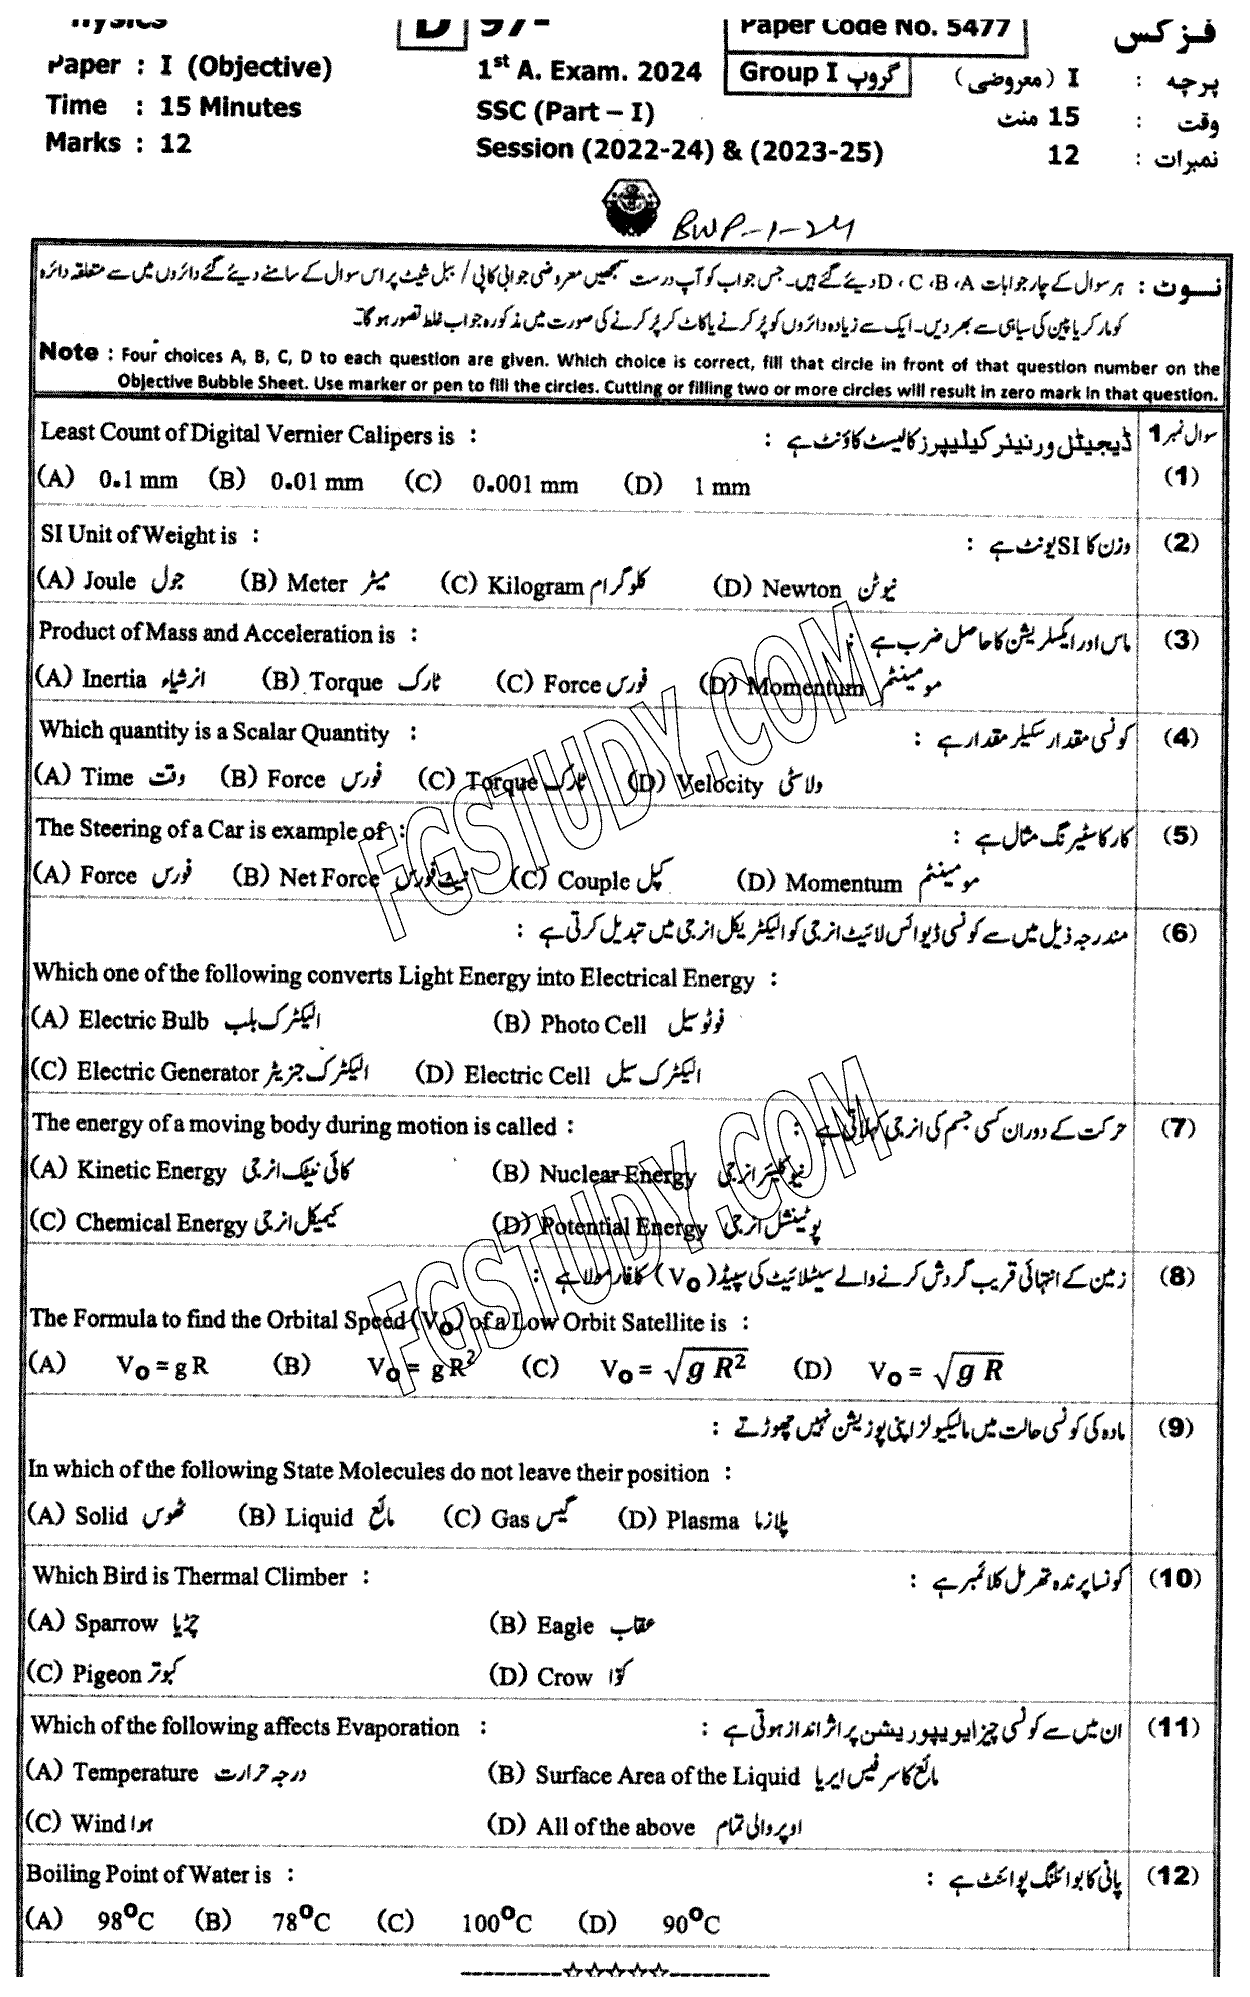 Physics D 97- Paper Code No. 5477 فزکس
Paper : I (Objective) 1st A. Exam. 2024 Group I گروپ پرچہ : I (معروضی)
Time : 15 Minutes SSC (Part – I) وقت : 15 منٹ
Marks : 12 Session (2022-24) & (2023-25) نمبرات : 12
BWP-1-24
نوٹ : ہر سوال کے چار جوابات D ، C ، B ، A دیئے گئے ہیں۔ جس جواب کو آپ درست سمجھیں معروضی جوابی کاپی / ببل شیٹ پر اس سوال کے سامنے دیئے گئے دائروں میں سے متعلقہ دائرہ
کو مارکر یا پین کی سیاہی سے بھر دیں۔ ایک سے زیادہ دائروں کو پُر کرنے یا کاٹ کر پُر کرنے کی صورت میں مذکورہ جواب غلط تصور ہوگا۔
Note : Four choices A, B, C, D to each question are given. Which choice is correct, fill that circle in front of that question number on the
Objective Bubble Sheet. Use marker or pen to fill the circles. Cutting or filling two or more circles will result in zero mark in that question.
Least Count of Digital Vernier Calipers is : ڈیجیٹل ورنیئر کیلیپرز کا لیسٹ کاؤنٹ ہے : سوال نمبر 1
(A) 0.1 mm (B) 0.01 mm (C) 0.001 mm (D) 1 mm (1)
SI Unit of Weight is : وزن کا SI یونٹ ہے : (2)
(A) Joule جول (B) Meter میٹر (C) Kilogram کلوگرام (D) Newton نیوٹن
Product of Mass and Acceleration is : ماس اور ایکسلریشن کا حاصل ضرب ہے : (3)
(A) Inertia انرشیاء (B) Torque ٹارک (C) Force فورس (D) Momentum مومینٹم
Which quantity is a Scalar Quantity : کونسی مقدار سکیلر مقدار ہے : (4)
(A) Time وقت (B) Force فورس (C) Torque ٹارک (D) Velocity ولاسٹی
The Steering of a Car is example of : کار کا سٹیرنگ مثال ہے : (5)
(A) Force فورس (B) Net Force نیٹ فورس (C) Couple کپل (D) Momentum مومینٹم
مندرجہ ذیل میں سے کونسی ڈیوائس لائیٹ انرجی کو الیکٹریکل انرجی میں تبدیل کرتی ہے : (6)
Which one of the following converts Light Energy into Electrical Energy :
(A) Electric Bulb الیکٹرک بلب (B) Photo Cell فوٹو سیل
(C) Electric Generator الیکٹرک جنریٹر (D) Electric Cell الیکٹرک سیل
The energy of a moving body during motion is called : حرکت کے دوران کسی جسم کی انرجی کہلاتی ہے : (7)
(A) Kinetic Energy کائی نیٹک انرجی (B) Nuclear Energy نیوکلیئر انرجی
(C) Chemical Energy کیمیکل انرجی (D) Potential Energy پوٹینشل انرجی
زمین کے انتہائی قریب گردش کرنے والے سیٹلائیٹ کی سپیڈ (Vo) کا فارمولا ہے : (8)
The Formula to find the Orbital Speed (Vo) of a Low Orbit Satellite is :
(A) Vo = g R (B) Vo = g R² (C) Vo = √(g R²) (D) Vo = √(g R)
مادہ کی کونسی حالت میں مالیکیولز اپنی پوزیشن نہیں چھوڑتے : (9)
In which of the following State Molecules do not leave their position :
(A) Solid ٹھوس (B) Liquid مائع (C) Gas گیس (D) Plasma پلازما
Which Bird is Thermal Climber : کونسا پرندہ تھرمل کلائمبر ہے : (10)
(A) Sparrow چڑیا (B) Eagle عقاب
(C) Pigeon کبوتر (D) Crow کوّا
Which of the following affects Evaporation : ان میں سے کونسی چیز ایویپوریشن پر اثر انداز ہوتی ہے : (11)
(A) Temperature درجہ حرارت (B) Surface Area of the Liquid مائع کا سرفیس ایریا
(C) Wind ہوا (D) All of the above اوپر والی تمام
Boiling Point of Water is : پانی کا بوائلنگ پوائنٹ ہے : (12)
(A) 98°C (B) 78°C (C) 100°C (D) 90°C
FGSTUDY.COM
FGSTUDY.COM